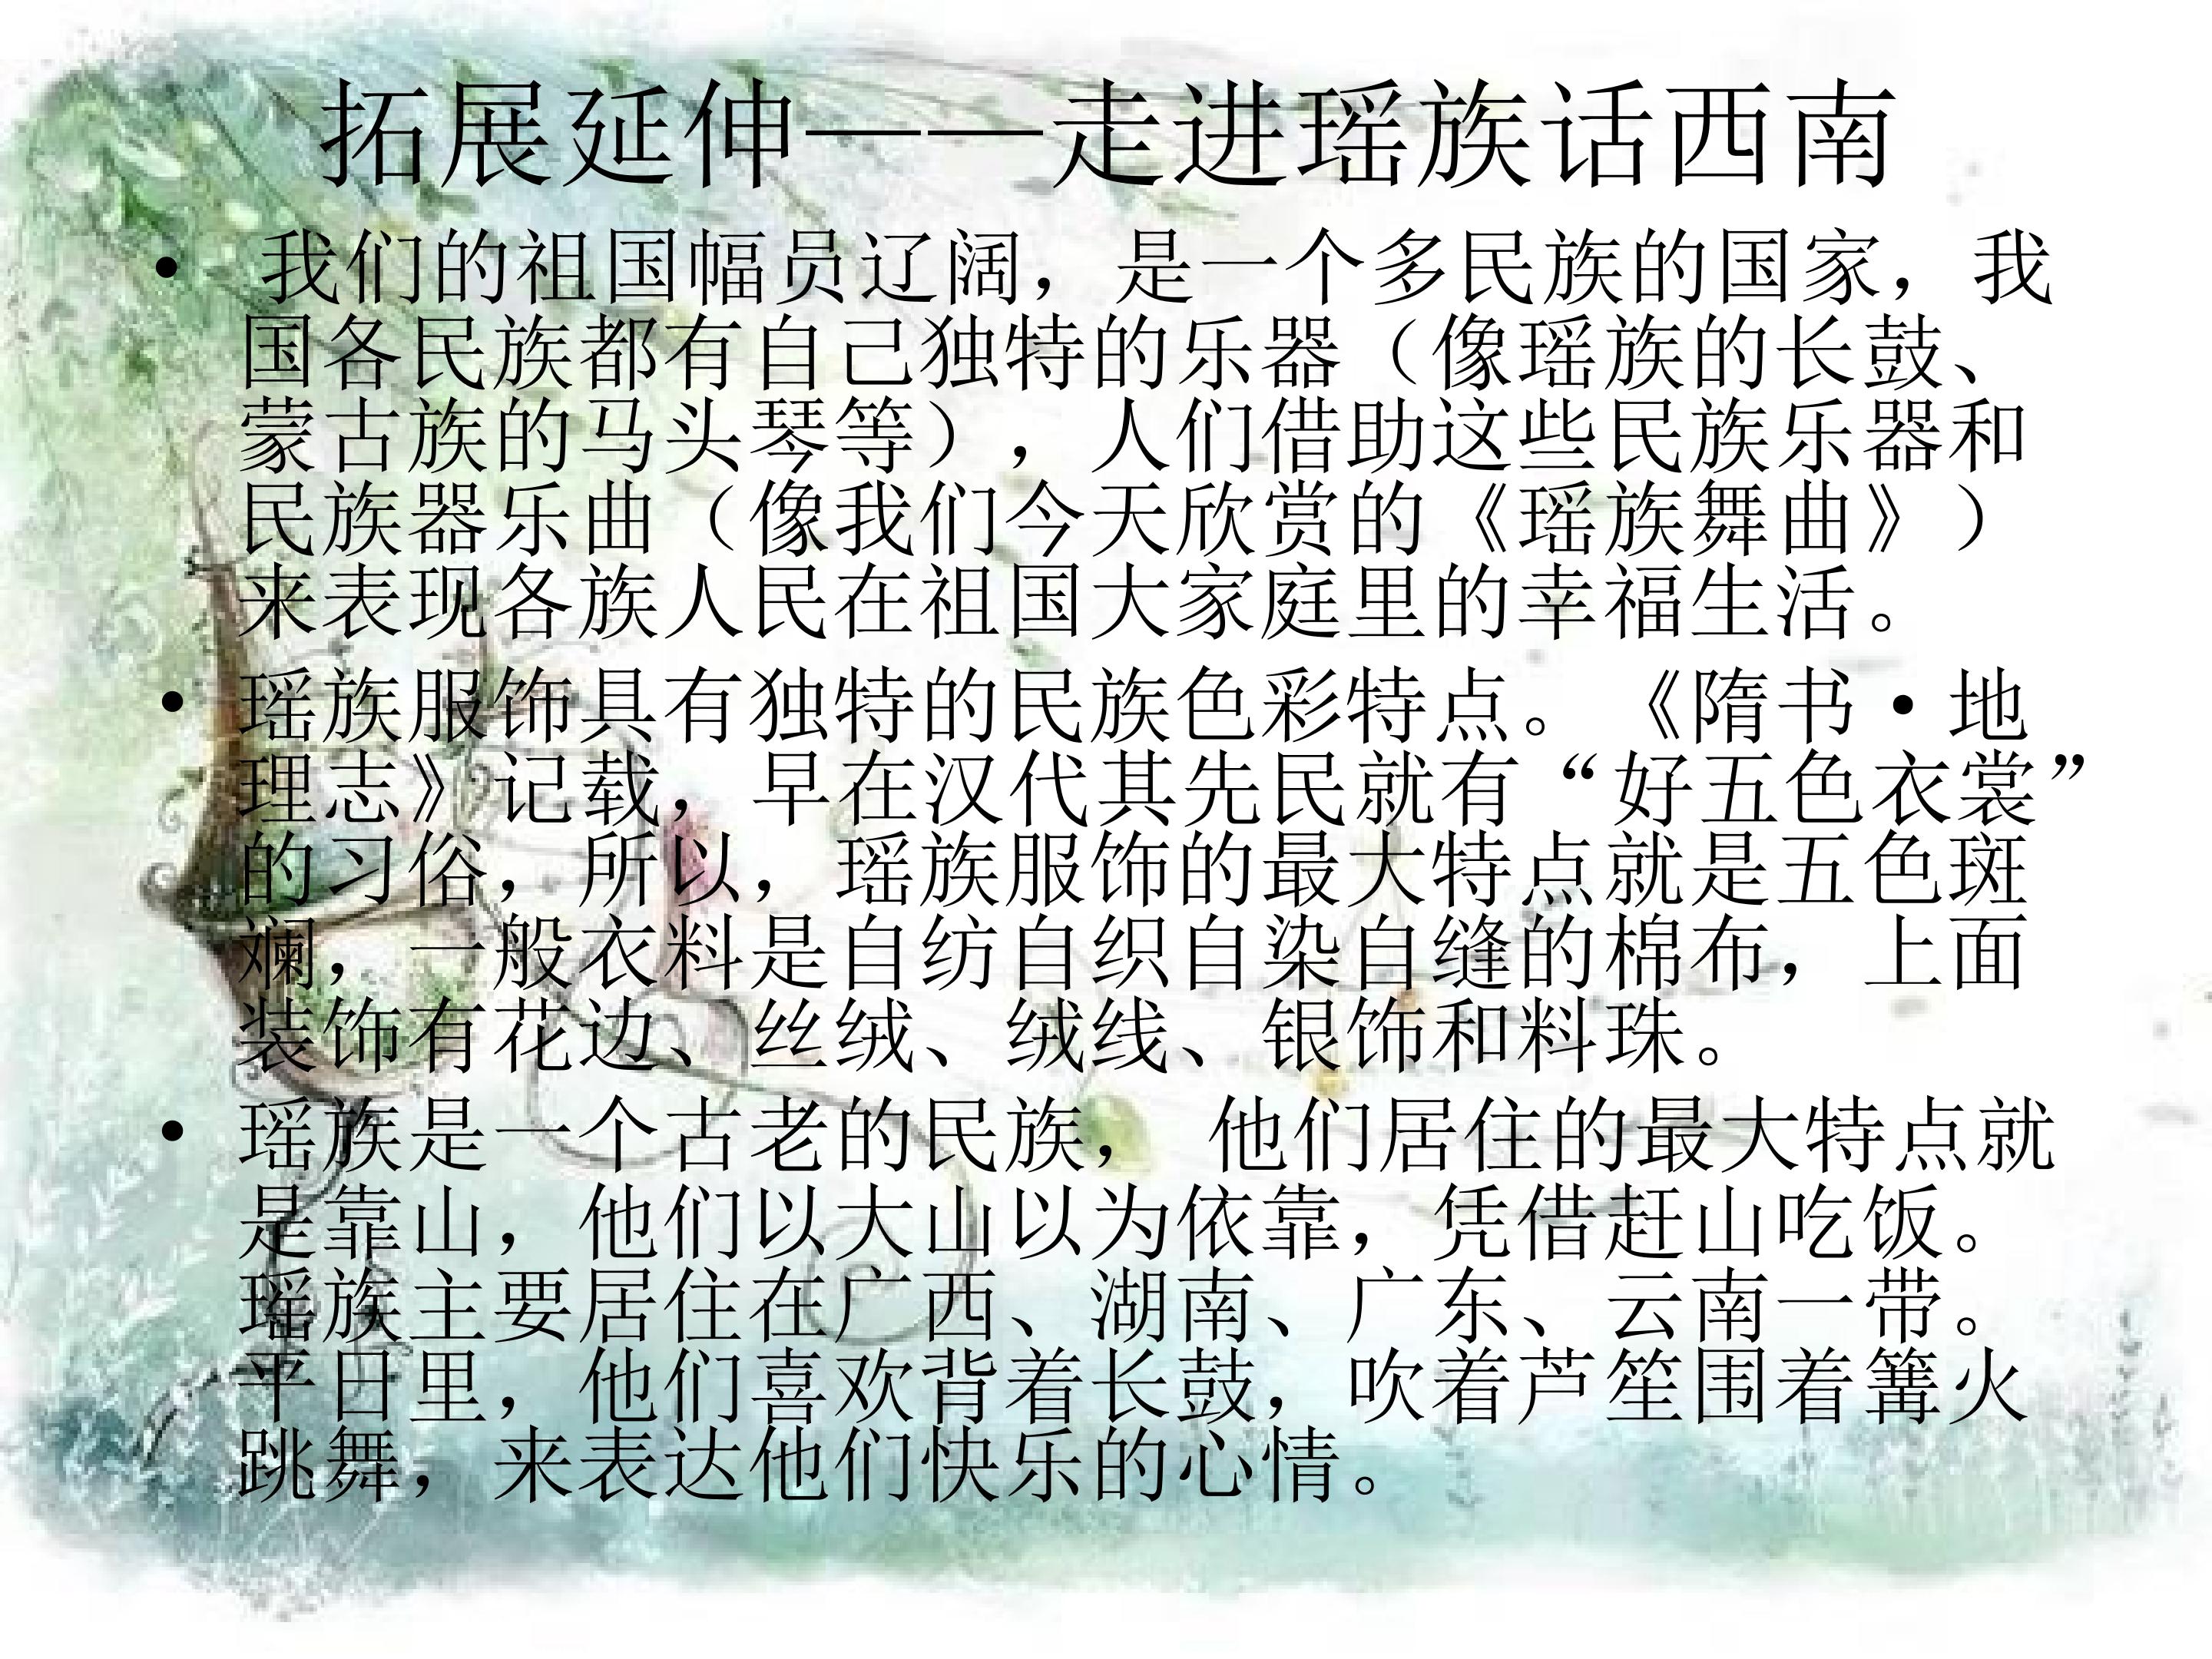 拓展延伸——走进瑶族话西南
• 我们的祖国幅员辽阔，是一个多民族的国家，我
国各民族都有自己独特的乐器（像瑶族的长鼓、
蒙古族的马头琴等），人们借助这些民族乐器和
民族器乐曲（像我们今天欣赏的《瑶族舞曲》）
来表现各族人民在祖国大家庭里的幸福生活。
• 瑶族服饰具有独特的民族色彩特点。《隋书·地
理志》记载，早在汉代其先民就有“好五色衣裳”
的习俗，所以，瑶族服饰的最大特点就是五色斑
斓，一般衣料是自纺自织自染自缝的棉布，上面
装饰有花边、丝绒、绒线、银饰和料珠。
• 瑶族是一个古老的民族， 他们居住的最大特点就
是靠山，他们以大山以为依靠，凭借赶山吃饭。
瑶族主要居住在广西、湖南、广东、云南一带。
平日里，他们喜欢背着长鼓，吹着芦笙围着篝火
跳舞，来表达他们快乐的心情。